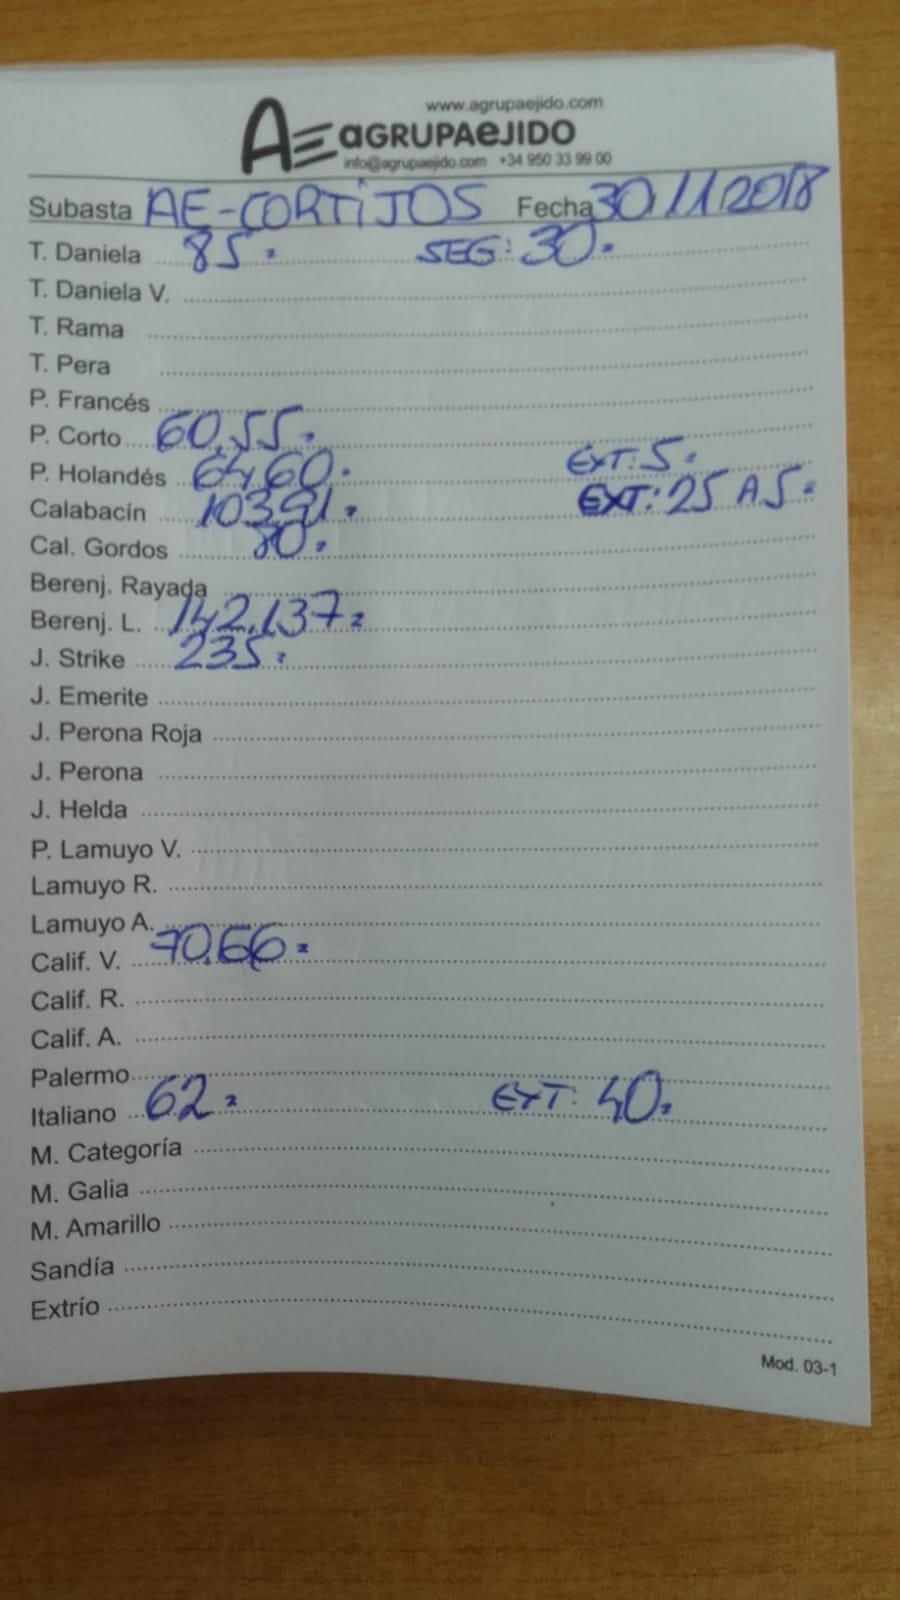 www.agrupaejido.com
AE aGRUPAeJIDO
info@agrupaejido.com +34 950 33 99 00
Subasta AE-CORTiJOS Fecha 30/11/2018
T. Daniela 85.= SEG: 30.=
T. Daniela V.
T. Rama
T. Pera
P. Francés
P. Corto 60,55.=
P. Holandés 64,60.= EXT: 5.=
Calabacín 103,91.= EXT: 25 A 5.=
Cal. Gordos 80.=
Berenj. Rayada
Berenj. L. 142,137=
J. Strike 235.=
J. Emerite
J. Perona Roja
J. Perona
J. Helda
P. Lamuyo V.
Lamuyo R.
Lamuyo A.
Calif. V. 70,66.=
Calif. R.
Calif. A.
Palermo
Italiano 62.= EXT: 40.=
M. Categoría
M. Galia
M. Amarillo
Sandía
Extrío
Mod. 03-1